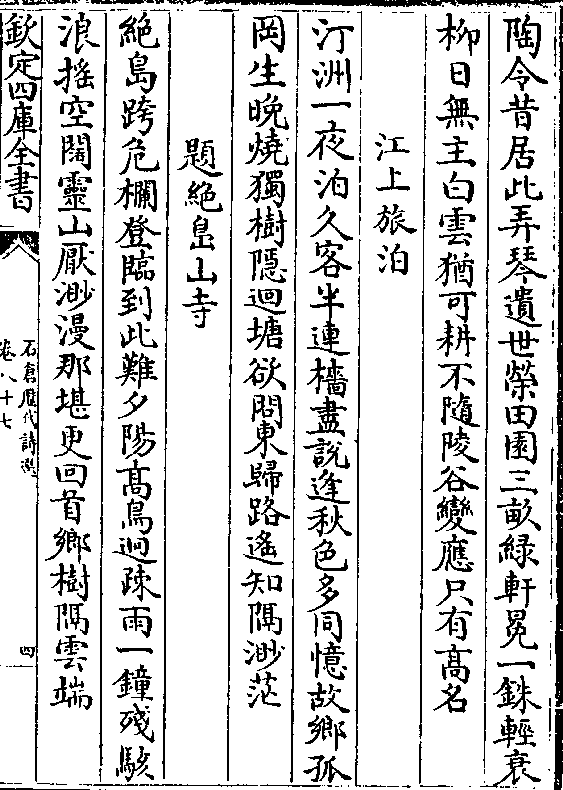 陶令昔居此弄琴遺世榮田園三畝綠軒冕一銖輕衰
柳日無主白雲猶可耕不隨陵谷變應只有髙名
江上旅泊
汀洲一夜泊久客半連檣盡說逢秋色多同憶故鄉孤
岡生晚燒獨樹隱迴塘欲問東歸路遙知隔渺茫
題絶島山寺
絶島跨危欄登臨到此難夕陽髙鳥逈疎雨一鐘殘駭
浪搖空闊靈山厭渺漫那堪更回首鄉樹隔雲端
欽定四庫全書
石倉歷代詩選
卷八十七
四